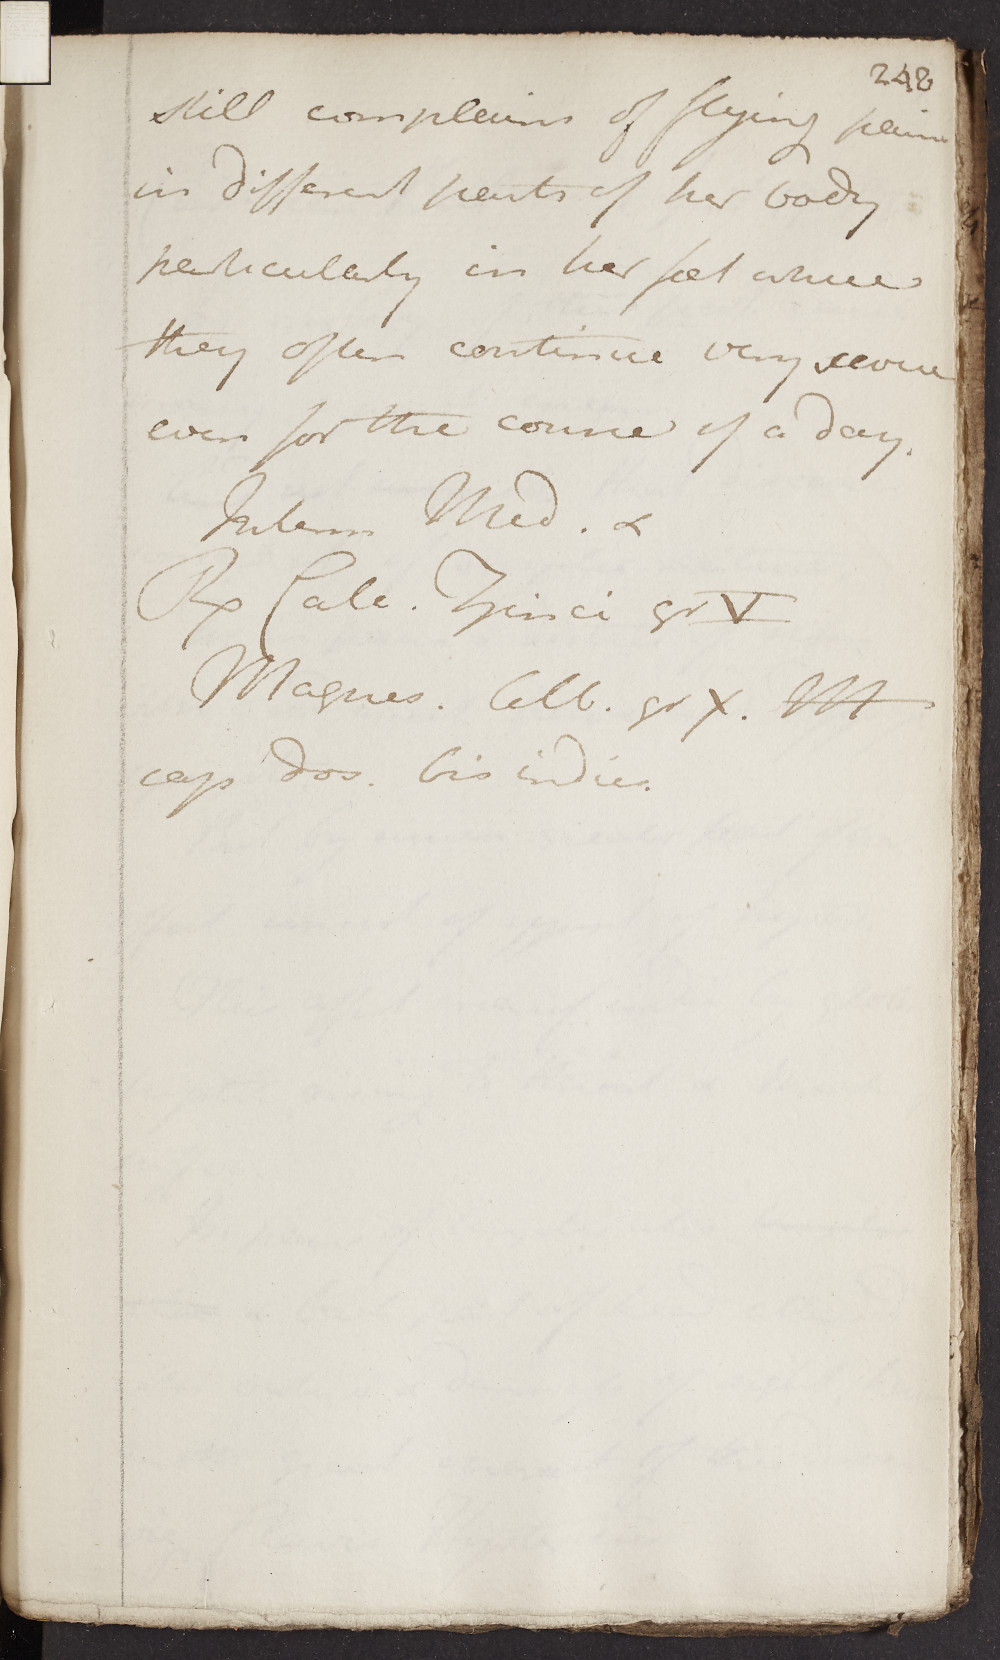 248
still complains of flying pains
in different parts of her body
particularly in her feet where
they often continue very severe
even for the course of a day.
Interm Med. &
Rx Calc. Zinci gr V
Magnes. Alb. gr X. M
cap dos. bis indies.